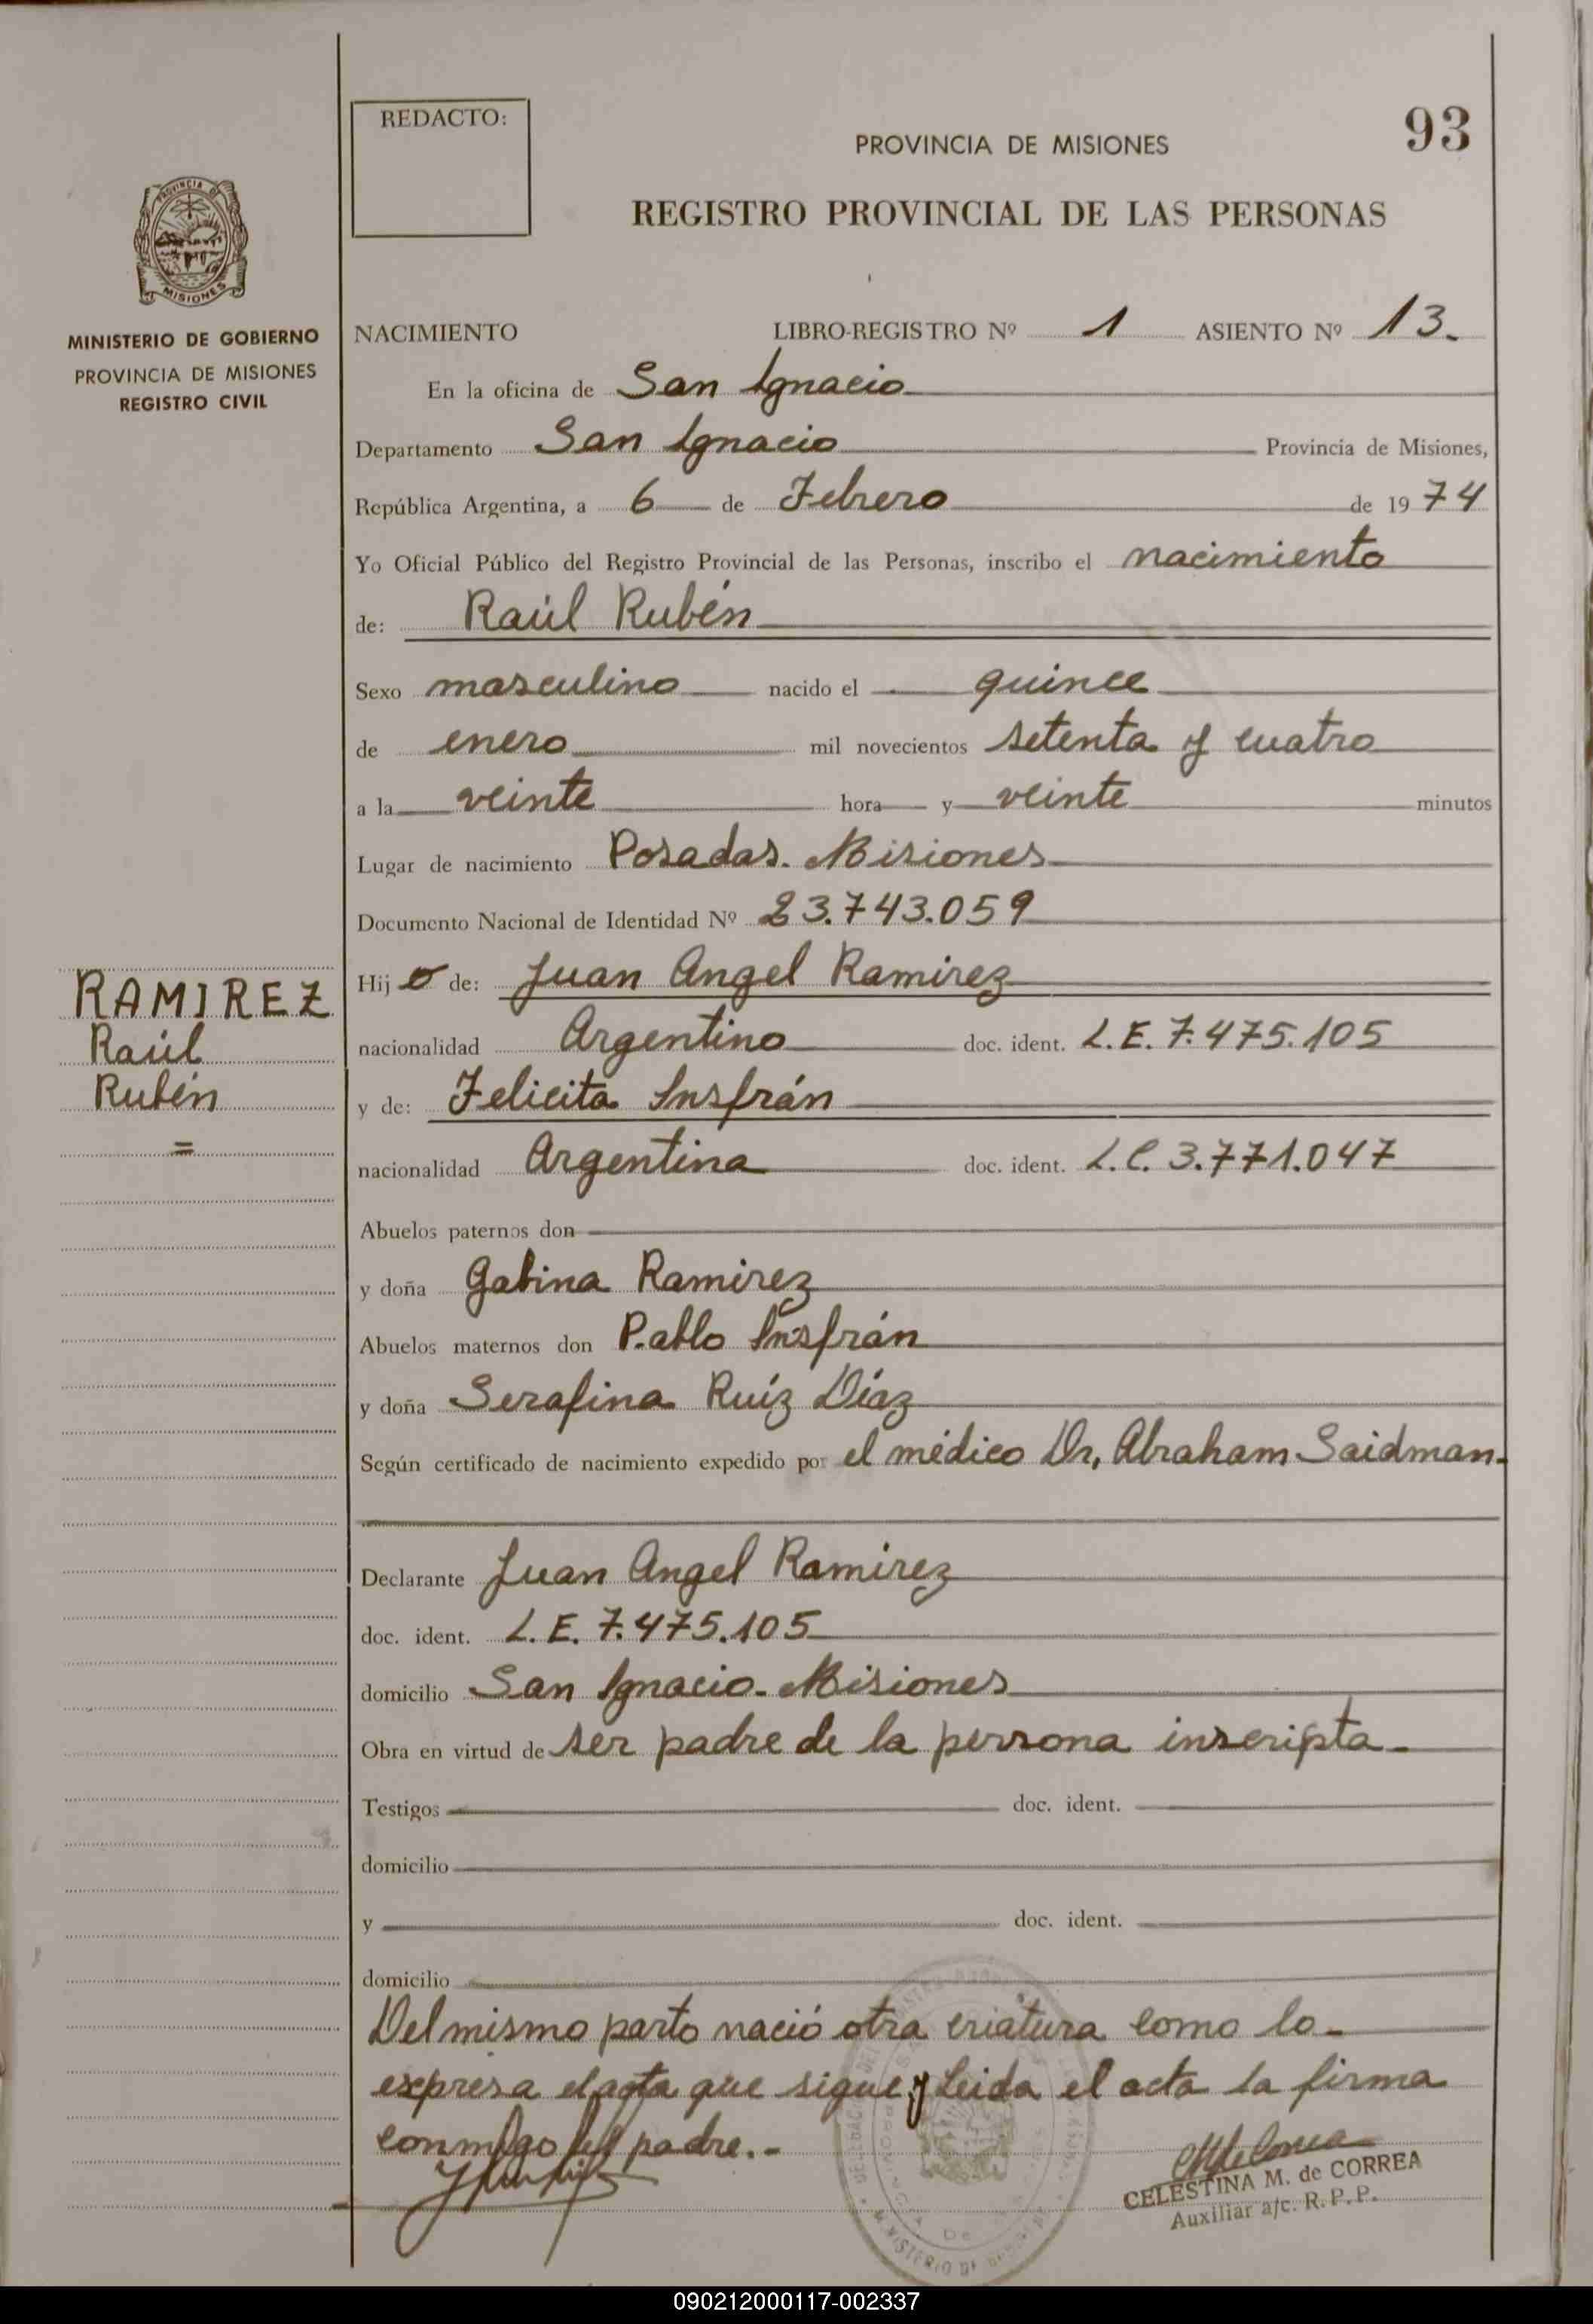 REDACTO:
93
PROVINCIA DE MISIONES
REGISTRO PROVINCIAL DE LAS PERSONAS
PROVINCIA DE
MISIONES
MINISTERIO DE GOBIERNO
PROVINCIA DE MISIONES
REGISTRO CIVIL
NACIMIENTO LIBRO-REGISTRO Nº 1 ASIENTO Nº 13.
En la oficina de San Ignacio
Departamento San Ignacio Provincia de Misiones,
República Argentina, a 6 de Febrero de 1974
Yo Oficial Público del Registro Provincial de las Personas, inscribo el nacimiento
de: Raúl Rubén
Sexo masculino nacido el quince
de enero mil novecientos setenta y cuatro
a la veinte hora y veinte minutos
Lugar de nacimiento Posadas. Misiones
Documento Nacional de Identidad Nº 23.743.059
RAMIREZ
Raúl
Rubén
=
Hijo de: Juan Angel Ramirez
nacionalidad Argentino doc. ident. L.E. 7.475.105
y de: Felicita Insfrán
nacionalidad Argentina doc. ident. L.C. 3.771.047
Abuelos paternos don
y doña Gabina Ramirez
Abuelos maternos don Pablo Insfrán
y doña Serafina Ruíz Díaz
Según certificado de nacimiento expedido por el médico Dr, Abraham Saidman.
Declarante Juan Angel Ramirez
doc. ident. L.E. 7.475.105
domicilio San Ignacio - Misiones
Obra en virtud de ser padre de la persona inscripta-
Testigos doc. ident.
domicilio
y doc. ident.
domicilio
Del mismo parto nació otra criatura como lo-
expresa el acta que sigue y Leida el acta la firma
conmigo el padre.-
CELESTINA M. de CORREA
Auxiliar a/c. R.P.P.
090212000117-002337